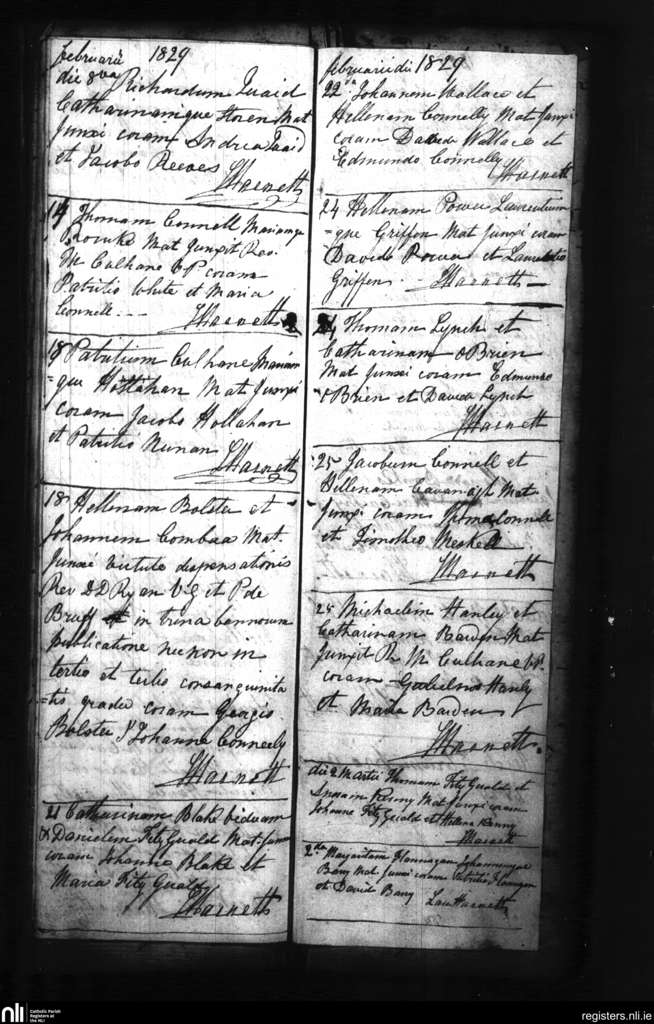 februarii 1829
die 8va Richardum Quaid
Catharinamque Mat
Junxi coram Andrea Quaid
et Jacobo Reeves
LHarnett
14 Thomam Connell Mariamque
Mat Junxit Rev.
M Culhane CP coram
Patritio White et Maria
Connell
LHarnett
18 Patritium Culhane Mariam
=que Mat Junxi
coram Jacobo Hollahan
et Patritio Nunan
LHarnett
18 Hellenam Bolster et
Johannem Mat
Junxi virtute dispensationis
Rev DD Ryan VG et P de
Bruff in trina bannorum
publicatione neknon in
tertio et tertio consanguinita
tis gradu coram Georgio
Bolster & Johanne Connerly
LHarnett
21 Catharinam Blake viduam
& Danielem Fitz Gerald Mat Junxi
coram Johanne Blake et
Maria Fitz Gerald
LHarnett
februarii die 1829
22 Johannem Wallace et
Hellenam Connelly Mat Junxi
coram Davide Wallace et
Edmundo Connelly
LHarnett
24 Hellenam Power Laurentium
=que Griffen Mat Junxi coram
Davide Power et Laurentio
Griffen LHarnett
24 Thomam Lynch et
Catharinam OBrien
Mat Junxi coram Edmundo
OBrien et Davide Lynch
LHarnett
25 Jacobum Connell et
Hellenam Cavanagh Mat
Junxi coram Thoma Connell
et Timotheo Meskell
LHarnett
25 Michaelem Hanley et
Catharinam Barden Mat
Junxit R M Culhane CP
coram Gulielmo Hanly
et Maria Barden
LHarnett
die 2 Martii Thomam Fitz Gerald et
Kenny Mat Junxi coram
Johanne Fitz Gerald et Helena Kenny
LHarnett
2 Margaritam Flannagan Johannemque
Barry Mat Junxi coram Patritio Flannagan
et David Barry Lau Harnett
nli
Catholic Parish
Registers at
the NLI
registers.nli.ie